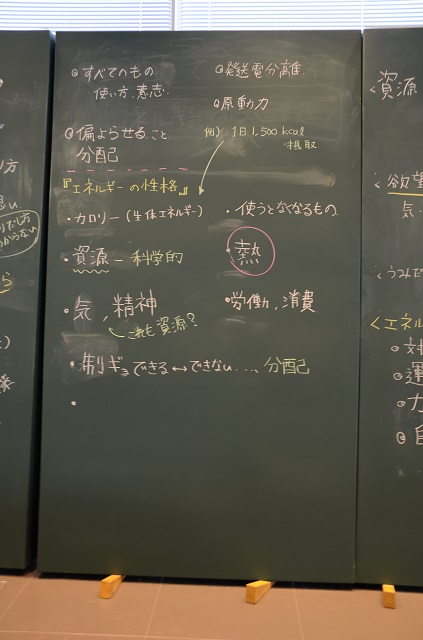 ◎すべてのもの
使い方、意志
◎偏よらせること
分配
◎発送電分離
◎原動力
例) 1日1,500 kcal
摂取
『エネルギーの性格』
・カロリー(生体エネルギー)
・資源 - 科学的
・気、精神
これも資源?
・使うとなくなるもの
・熱
・労働、消費
・制ギョできる↔できない...、分配
・
資源
<欲望
気
<うみだ
<エネル
◎対
◎運
◎力
◎自